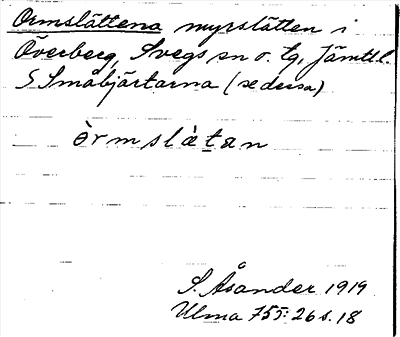 Ormslåttena myrslåtten i
Överberg, Svegs sn o. tg, Jämtl.l.
S Småbjärtarna (se dessa)
òrmslàtan
S. Åsander 1919
Ulma 755: 26 s. 18